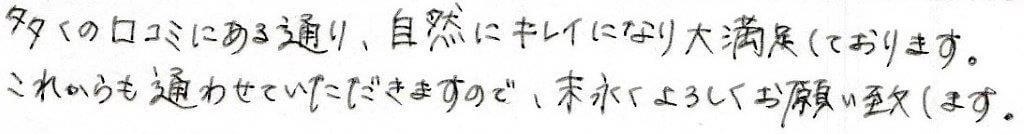 多くの口コミにある通り、自然にキレイになり大満足しております。
これからも通わせていただきますので、末永くよろしくお願い致します。